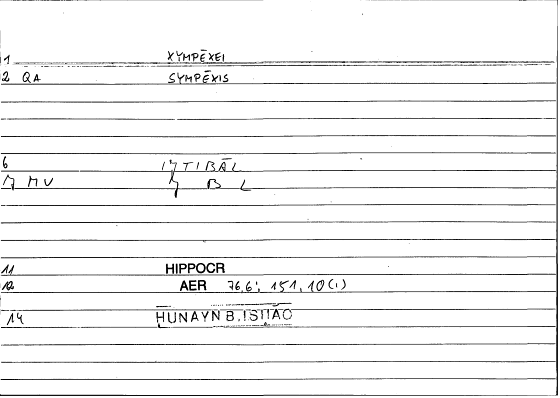 1 XYMPĒXEI
2 QA SYMPĒXIS
6 IʿTIBĀL
ʿ MV ʿ B L
11 HIPPOCR
12 AER 76,6; 151,10(1)
14 ḤUNAYN B. ISḤĀQ